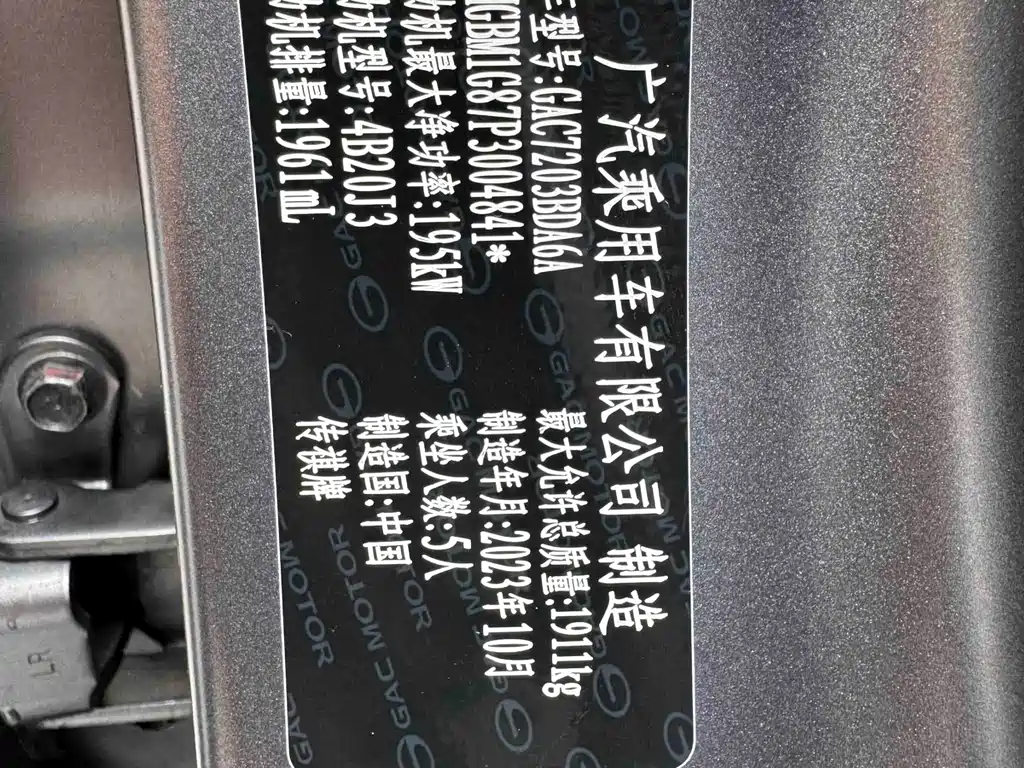 广汽乘用车有限公司 制造
型号:GAC7203BDA6A 最大允许总质量:1911kg
GBM1G87P300841* 制造年月:2023年10月
动机最大净功率:195kW 乘坐人数:5人
动机型号:4B20J3 制造国:中国
动机排量:1961mL 传祺牌
GAC MOTOR
LR